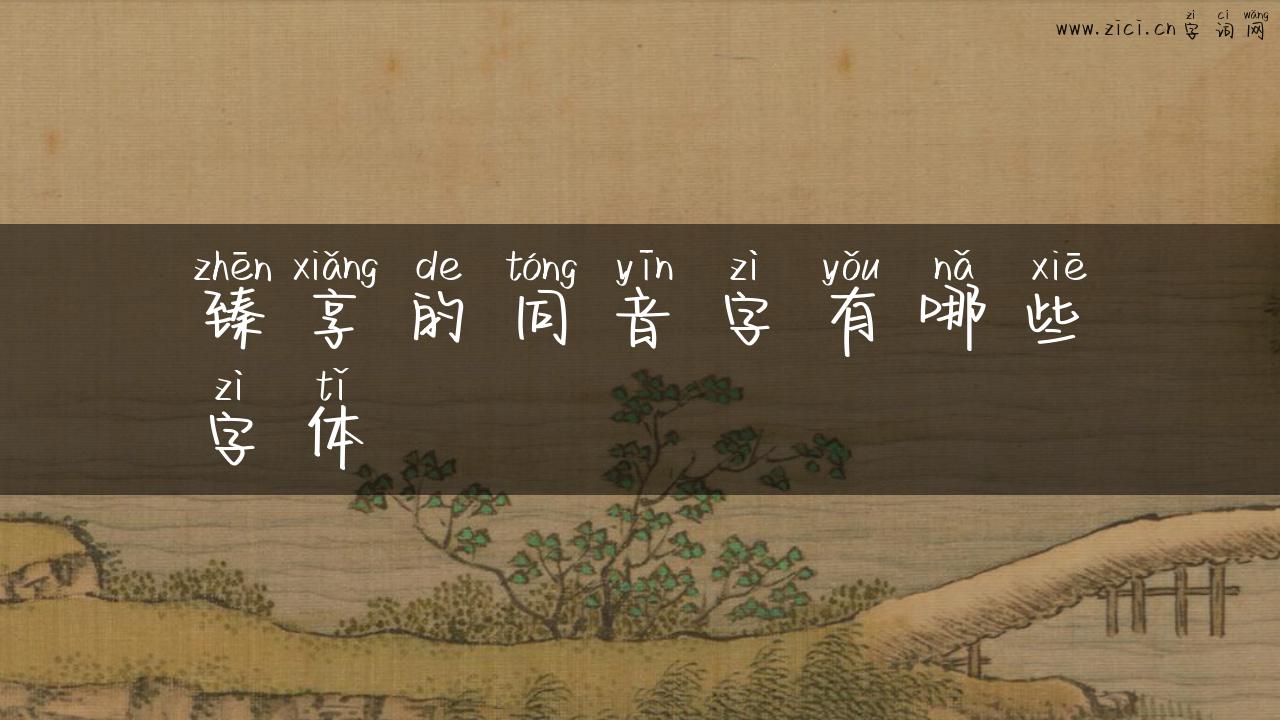 zì cí wǎng
www.zici.cn 字 词 网
zhēn xiǎng de tóng yīn zì yǒu nǎ xiē
臻 享 的 同 音 字 有 哪 些
zì tǐ
字 体